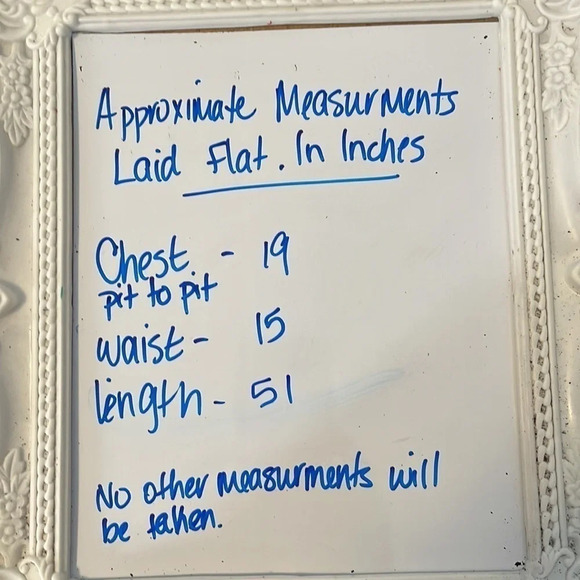 Approximate Measurments
Laid Flat. In Inches
Chest. - 19
pit to pit
waist - 15
length - 51
No other measurments will
be taken.